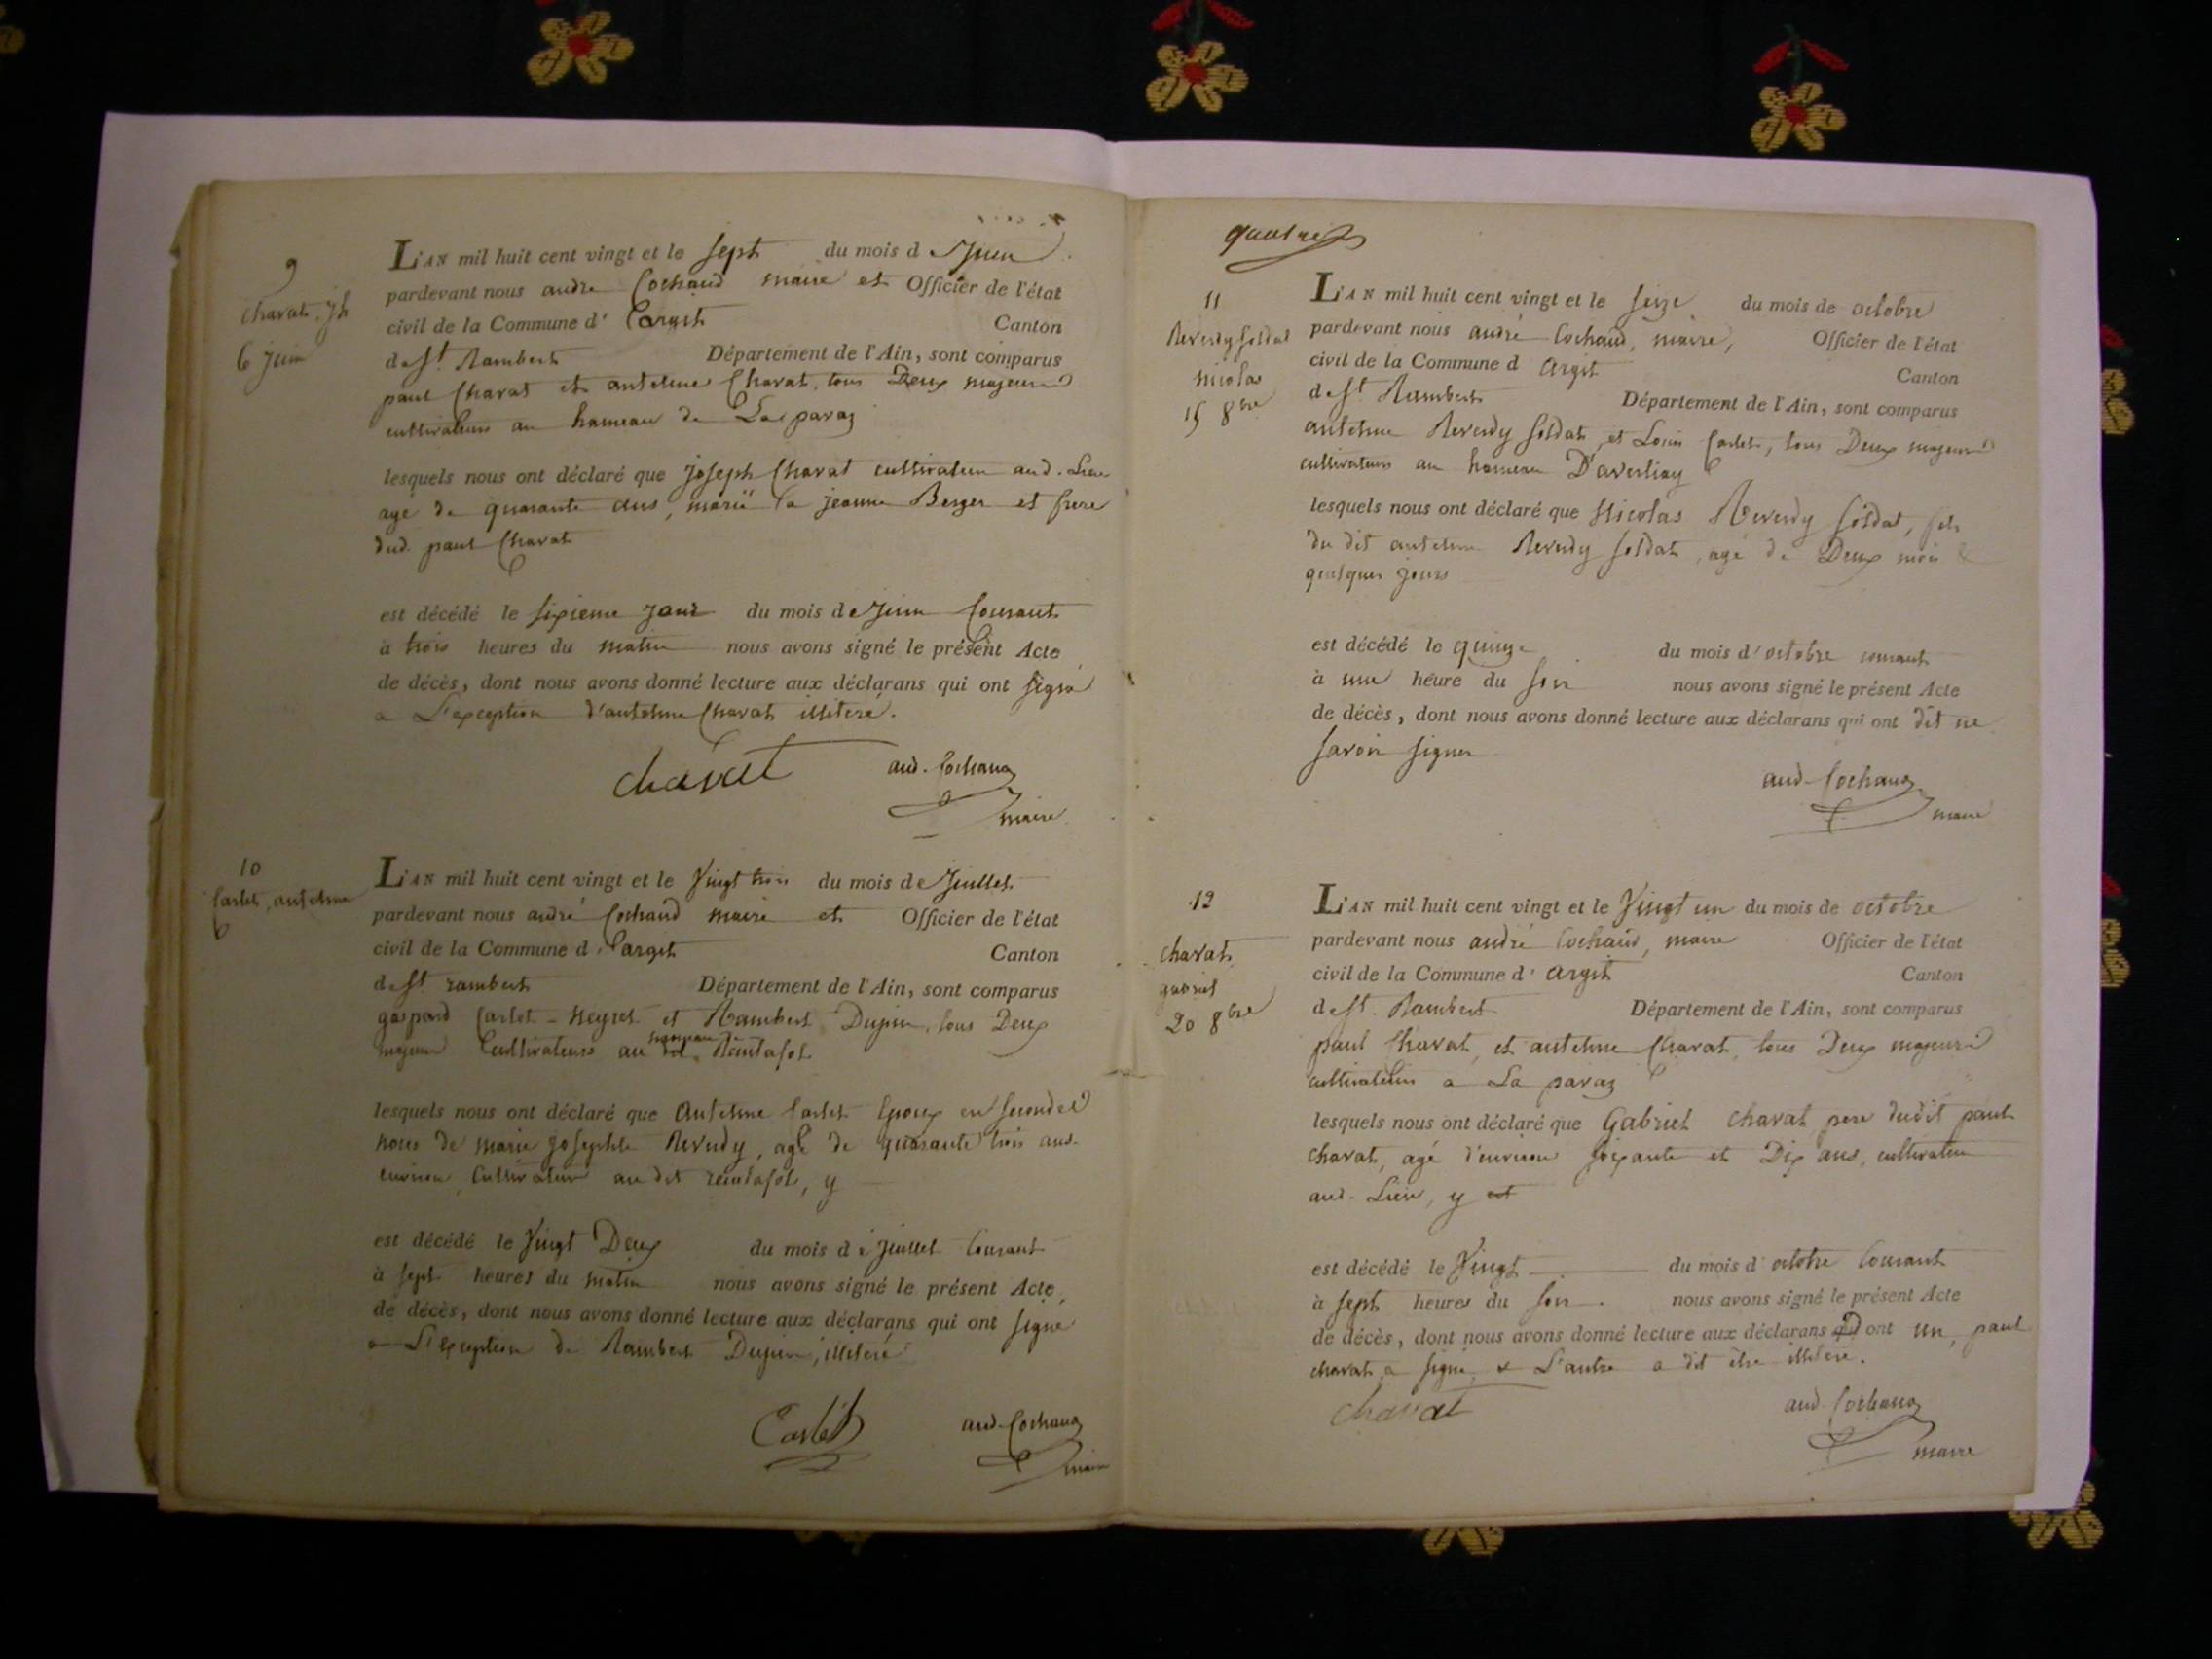 9
Charat, jh
6 juin
L'AN mil huit cent vingt et le sept du mois de Juin
pardevant nous andré Cochaud maire et Officier de l'état
civil de la Commune d'argit Canton
de St. Rambert Département de l'Ain, sont comparus
paul Charat et antelme Charat, tous Deux majeurs
cultivateurs au hameau de La paraz
lesquels nous ont déclaré que joseph Charat cultivateur aud. Lieu
age de quarante ans, marié a jeanne Berger et frere
dud. paul Charat
est décédé le sixieme jour du mois de Juin Courant
à trois heures du matin nous avons signé le présent Acte
de décès, dont nous avons donné lecture aux déclarans qui ont signé
a L'exception d'antelme Charat illitere.
charat and. Cochaud
maire
10
Carlet, antelme
L'AN mil huit cent vingt et le Vingt trois du mois de Juillet
pardevant nous andré Cochaud maire et Officier de l'état
civil de la Commune d'argit Canton
de St. rambert Département de l'Ain, sont comparus
gaspard Carlet-Neyret et Rambert Dupin, tous Deux
majeurs Cultivateurs au hameau de
lesquels nous ont déclaré que antelme Carlet Epoux en secondes
noces de marie josephte Reverdy, agé de quarante trois ans
environ, Cultivateur au dit y
est décédé le Vingt Deux du mois de juillet Courant
à sept heures du matin nous avons signé le présent Acte,
de décès, dont nous avons donné lecture aux déclarans qui ont signé
a L'exception de Rambert Dupin, illiteré
Carlet and. Cochaud
maire
quatre
11
Reverdy soldat
nicolas
15 8bre
L'AN mil huit cent vingt et le seize du mois de octobre
pardevant nous andré Cochaud, maire, Officier de l'état
civil de la Commune d argit Canton
de St. Rambert Département de l'Ain, sont comparus
antelme Reverdy soldat, et Louis Carlet, tous Deux majeurs
cultivateurs au hameau D'averliaz
lesquels nous ont déclaré que Nicolas Reverdy soldat, fils
du dit antelme Reverdy soldat, agé de Deux mois &
quelques jours
est décédé le quinze du mois d'octobre courant
à une heure du soir nous avons signé le présent Acte
de décès, dont nous avons donné lecture aux déclarans qui ont dit ne
savoir signer
and. Cochaud
maire
12
charat
gabriel
20 8bre
L'AN mil huit cent vingt et le Vingt un du mois de octobre
pardevant nous andré Cochaud, maire Officier de l'état
civil de la Commune d'argit Canton
de St. Rambert Département de l'Ain, sont comparus
paul Charat, et antelme Charat, tous Deux majeurs
cultivateurs a La paraz
lesquels nous ont déclaré que Gabriel charat pere dudit paul
charat, agé d'environ soixante et Dix ans, cultivateur
aud. Lieu, y est
est décédé le Vingt du mois d'octobre Courant
à sept heures du soir. nous avons signé le présent Acte
de décès, dont nous avons donné lecture aux déclarans qui ont un, paul
charat a signé, & L'autre a dit être illitere.
charat and. Cochaud
maire